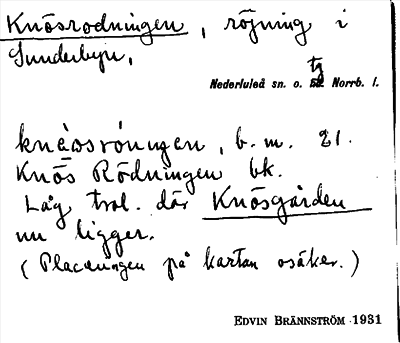 Knösrodningen, röjning i
Sunderbyn,
tg
Nederluleå sn. o. Norrb. l.
b.m. 21.
Knös Rödningen bk.
Låg trol. där Knösgården
nu ligger.
(Placeringen på kartan osäker.)
EDVIN BRÄNNSTRÖM 1931